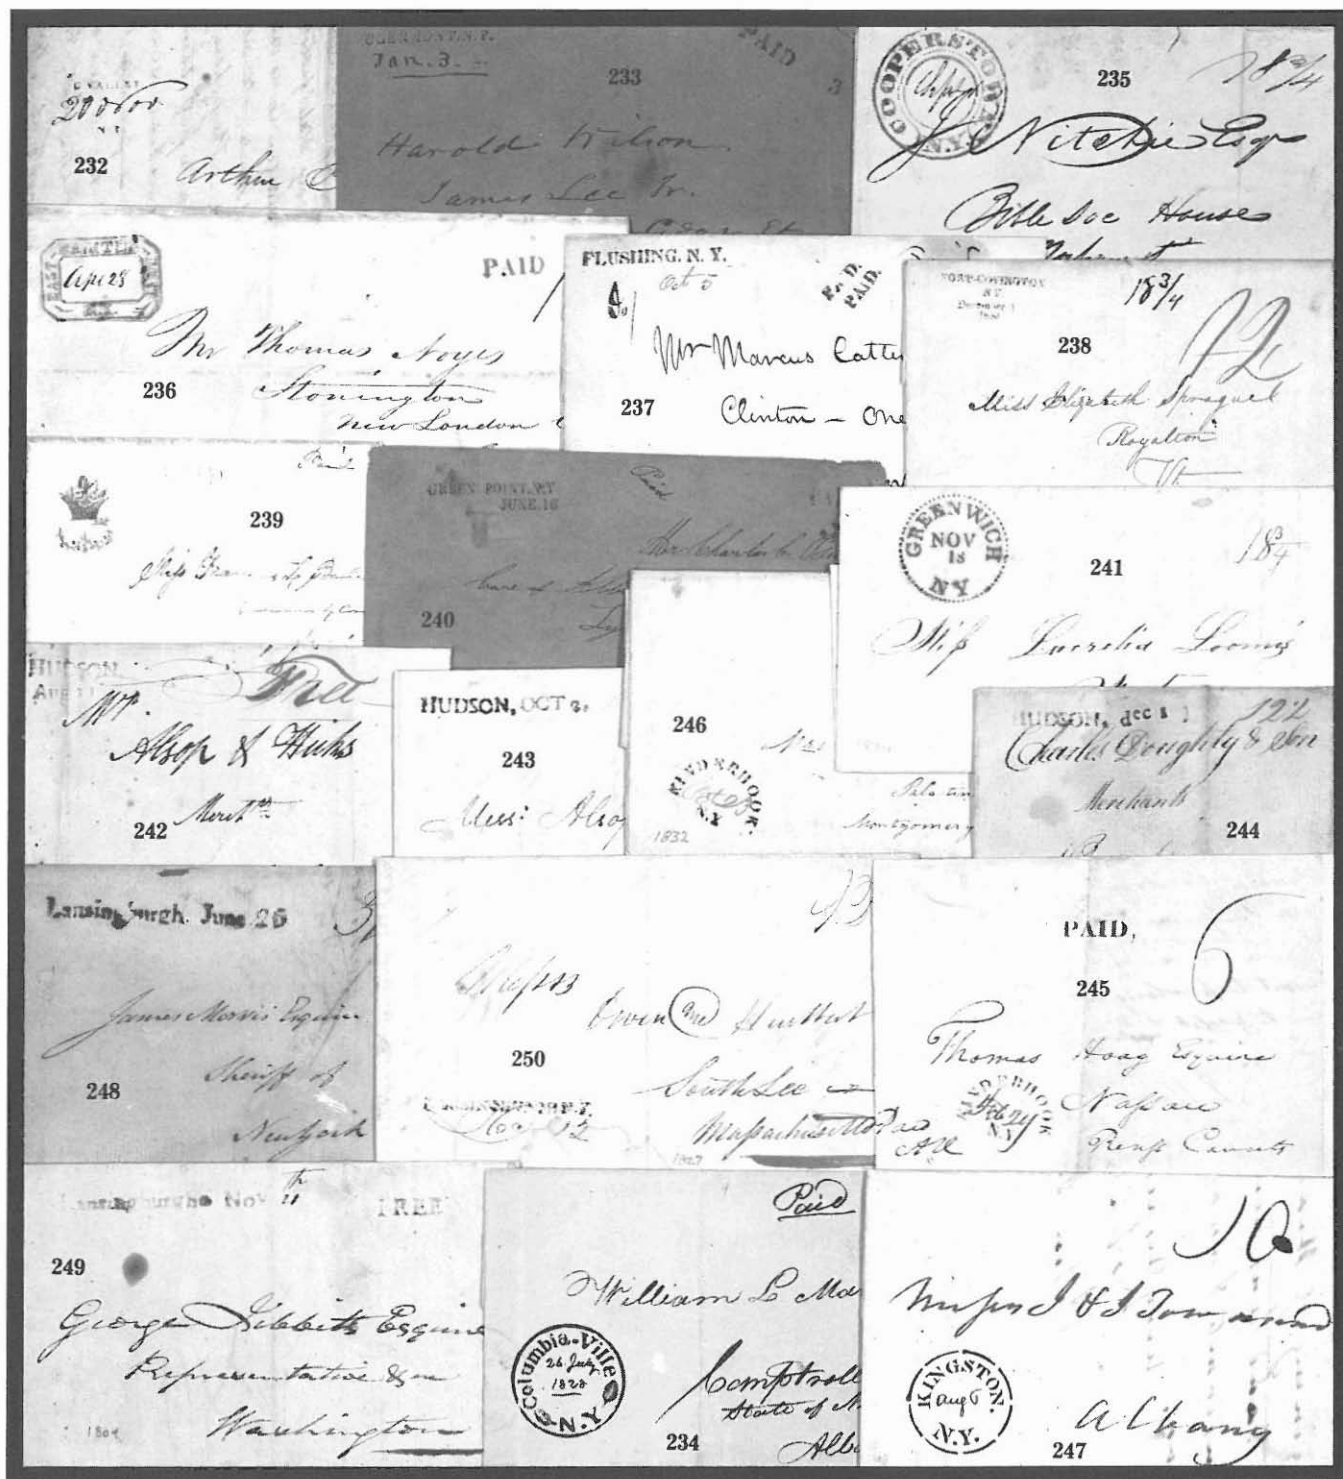 C. VALLEY
20 Nov
N.Y.
232
Arthur
CLERMONT. N.Y.
Jan. 3.
PAID
3
233
Harold Wilson
James Lee Jr.
Cedar St
COOPERSTOWN
N.Y.
235
18 3/4
J Nitchie Esqr
Bible Soc House
EAST HAMPTON
Apr 28
PAID
Mr Thomas Noyes
236
Stonington
New London
FLUSHING. N. Y.
Oct 5
PAID.
PAID.
Mr Marcus Catte
237
Clinton - One
FORT-COVINGTON
N.Y.
18 3/4
238
12
Miss Elizabeth Sprague
Royalton
Vt
Paid
239
Miss
GREEN POINT. N.Y
JUNE. 16
Paid
240
Care of
GREENWICH
NOV
18
NY
241
18 3/4
Miss Lucretia Loomis
HUDSON,
Aug
Free
Mr.
Alsop & Hicks
242
Mercts
HUDSON, OCT 2.
243
Mess: Alsop
246
KINDERHOOK.
Oct
N.Y
1832
Palatin
Montgomery
HUDSON, dec 8
12 1/2
Charles Doughty & Son
Merchants
244
Lansingburgh. June 26
James Morris Esquire
248
Sheriff of
New York
12
Messrs
Owen and Hurlbut
250
South Lee
Massachusetts
1827
PAID,
6
245
Thomas Hoag Esquire
KINDERHOOK
Feb 24
NY
Nassau
Renss County
Lansingburgh Nov 11th
FREE
249
George Tibbits Esquire
Representative &c
Washington
Paid
William L Ma
Columbia-Ville
26 July
1828
N.Y.
Comptroll
State of N
234
Alb
10
Messrs I & J Townsend
KINGSTON
Aug 6
N.Y.
Albany
247